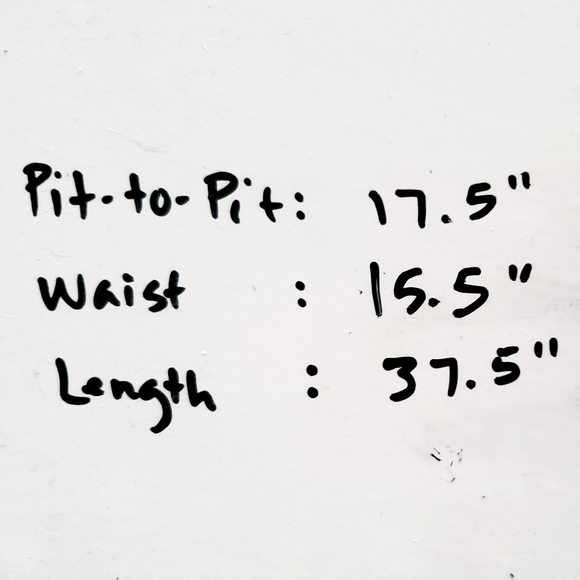 Pit-to-Pit: 17.5"
Waist : 15.5"
Length : 37.5"